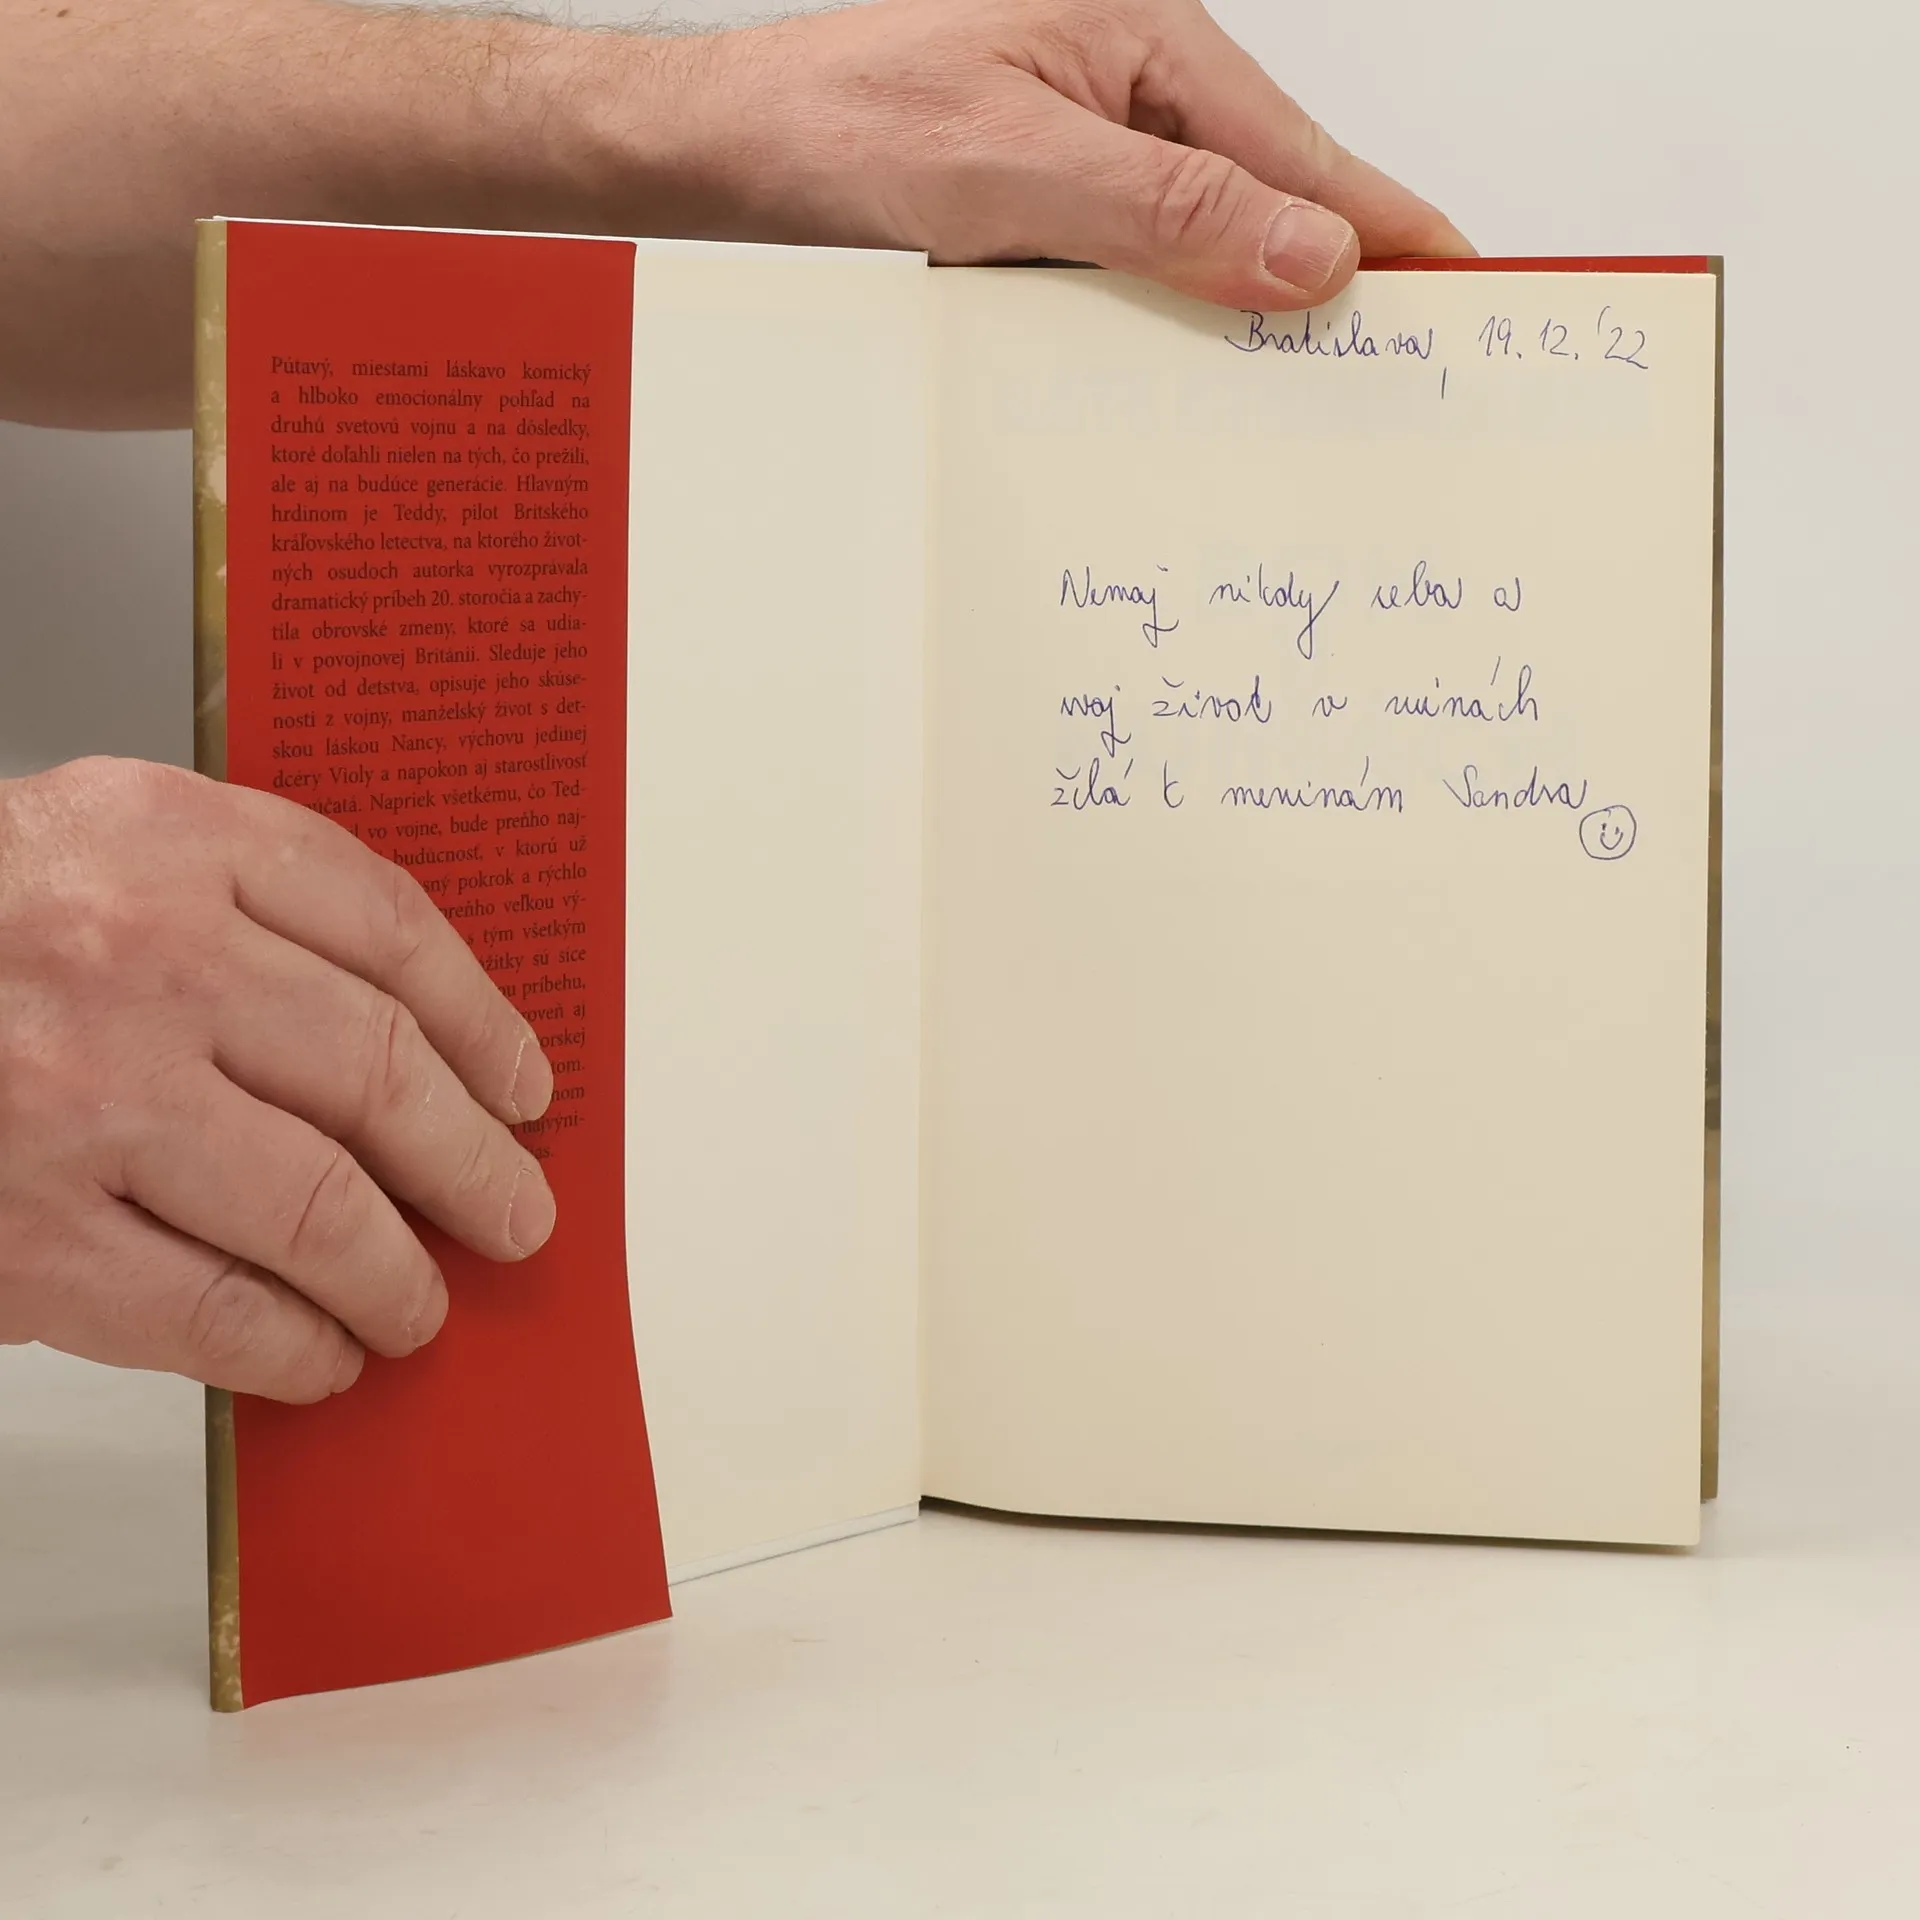 Pútavý, miestami láskavo komický
a hlboko emocionálny pohľad na
druhú svetovú vojnu a na dôsledky,
ktoré doľahli nielen na tých, čo prežili,
ale aj na budúce generácie. Hlavným
hrdinom je Teddy, pilot Britského
kráľovského letectva, na ktorého život-
ných osudoch autorka vyrozprávala
dramatický príbeh 20. storočia a zachy-
tila obrovské zmeny, ktoré sa udia-
li v povojnovej Británii. Sleduje jeho
život od detstva, opisuje jeho skúse-
nosti z vojny, manželský život s det-
skou láskou Nancy, výchovu jedinej
dcéry Violy a napokon aj starostlivosť
Napriek všetkému, čo Ted-
vo vojne, bude preňho naj-
budúcnosť, v ktorú už
pokrok a rýchlo
preňho veľkou vý-
s tým všetkým
sú síce
príbehu,
aj
najvýni-
Bratislava, 19. 12. '22
Nemaj nikdy seba a
svoj život v ruinách
želá k meninám Sandra